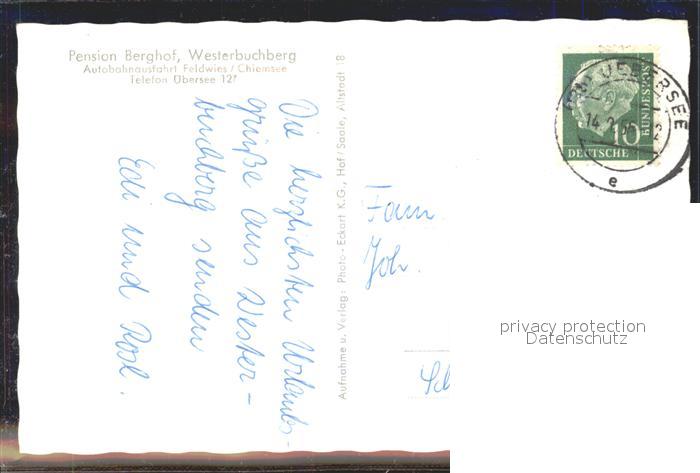 Pension Berghof, Westerbuchberg
Autobahnausfahrt Feldwies / Chiemsee
Telefon Übersee 127
Die herzlichsten Urlaubs-
grüße aus Wester-
buchberg senden
Edi und Rosl.
Aufnahme u. Verlag: Photo-Eckart K.G., Hof/Saale, Altstadt 18
Fam.
Joh.
UEBERSEE
e
10
DEUTSCHE
BUNDESPOST
privacy protection
Datenschutz